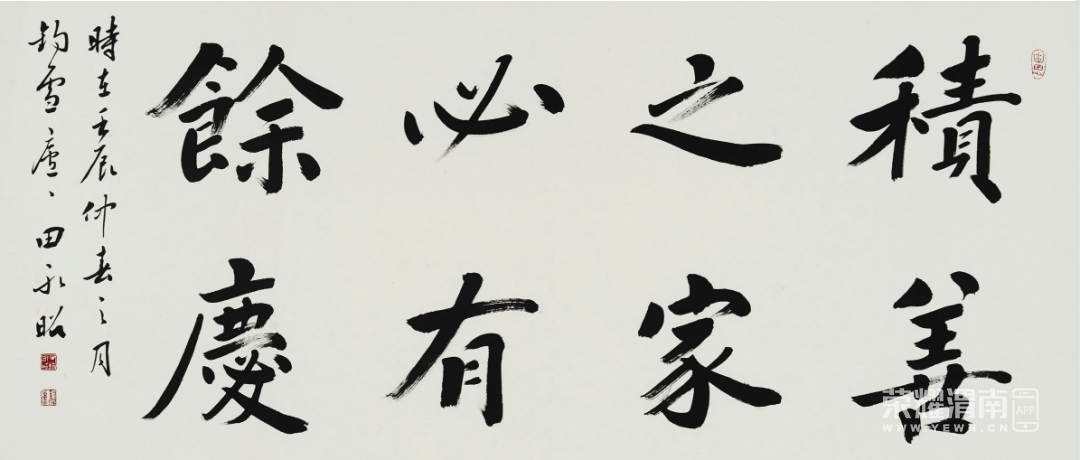 積善
之家
必有
餘慶
時在壬辰仲春之月
鈞雪廬田永昭
荣耀渭南
WWW.YEWN.CN
APP